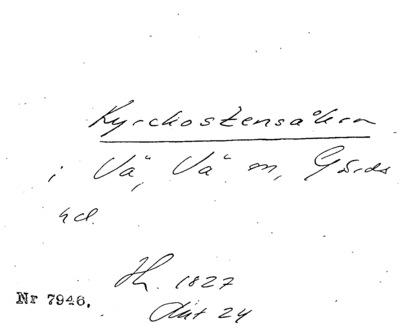 Kyrckostensåkra
i Vä, Vä sn, Gärds
hd.
Jh. 1827
Akt 24
Nr 7946.